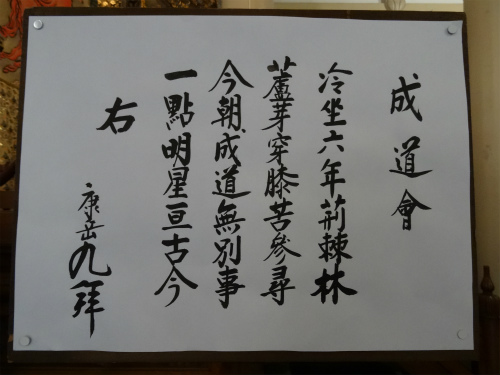 成道會
冷坐六年荊棘林
蘆芽穿膝苦參尋
今朝成道無別事
一點明星亘古今
右
康岳九拜